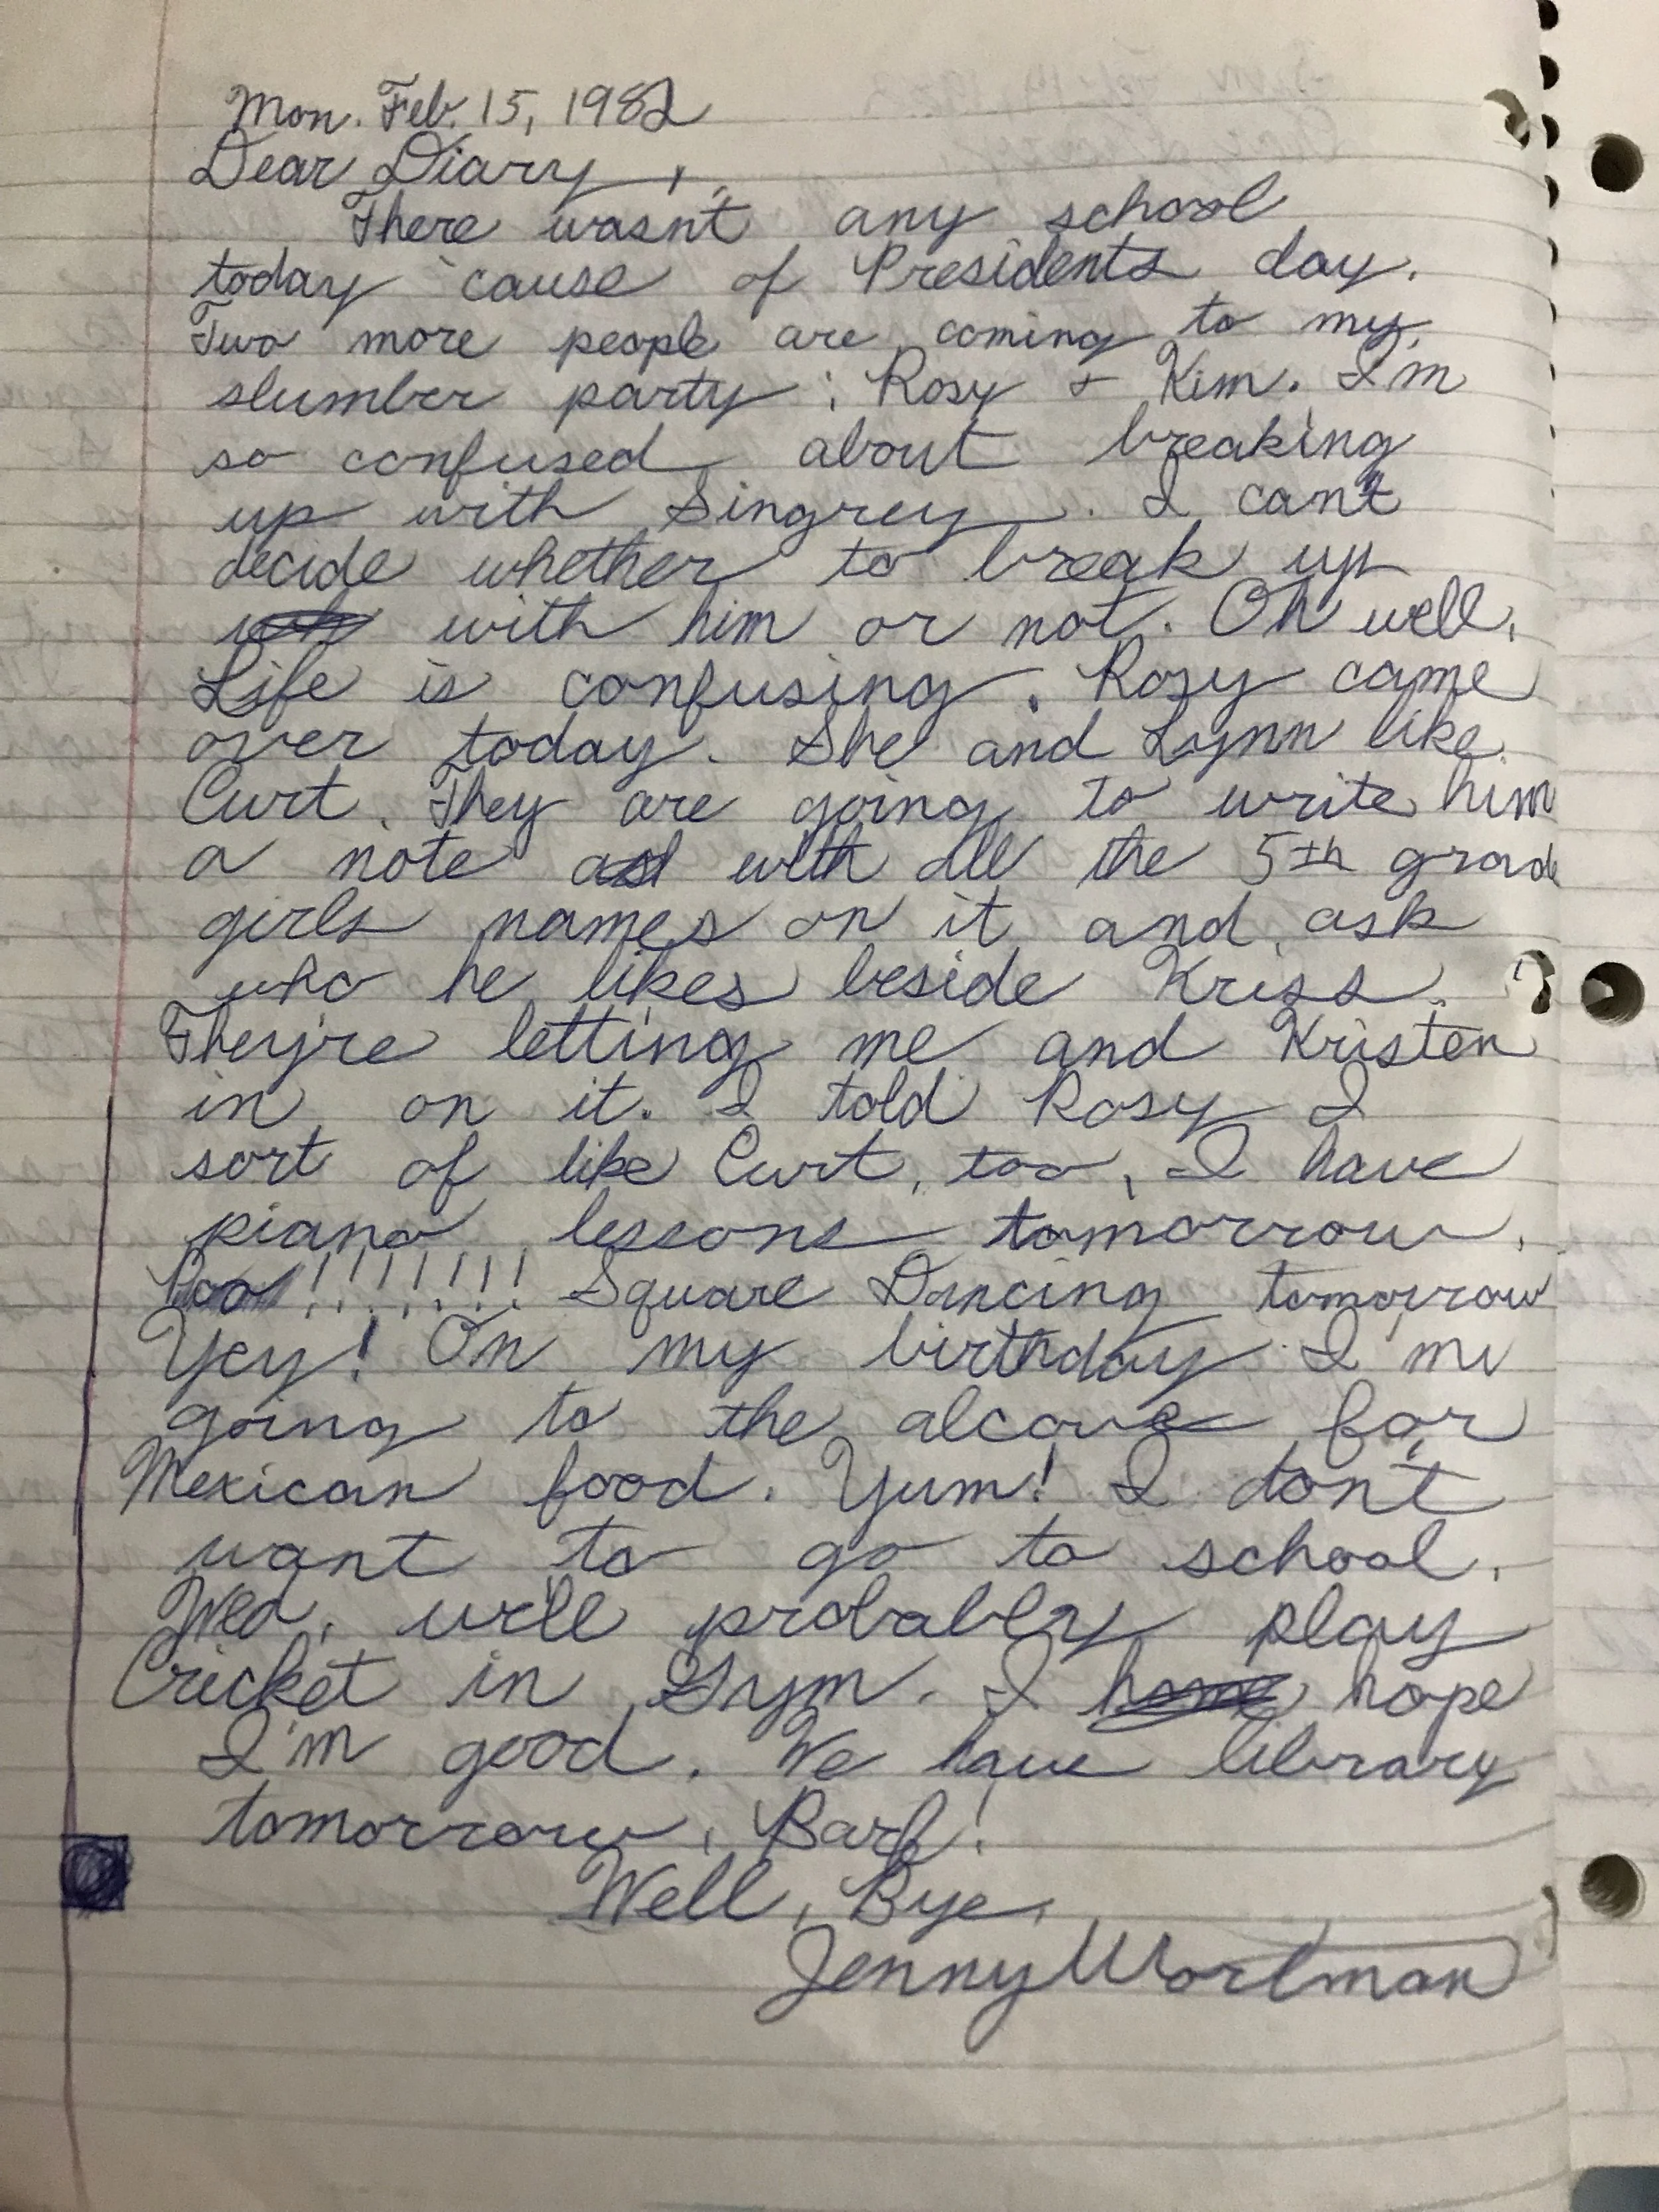 Mon. Feb. 15, 1982
Dear Diary,
There wasn't any school
today 'cause of Presidents day.
Two more people are coming to my
slumber party: Rosy & Kim. I'm
so confused about breaking
up with Singrey. I can't
decide whether to break up
with him or not. Oh well.
Life is confusing. Rosy came
over today. She and Lynn like
Curt. They are going to write him
a note with all the 5th grade
girls names on it and ask
who he likes beside Kriss.
They're letting me and Kristen
in on it. I told Rosy I
sort of like Curt, too. I have
piano lessons tomorrow.
Poo!!!!!!! Square Dancing tomorrow
Yey! On my birthday I'm
going to the alcove for
Mexican food. Yum! I don't
want to go to school.
Wed. we'll probably play
Cricket in Gym. I hope
I'm good. We have library
tomorrow. Barf!
Well, Bye,
Jenny Wortman